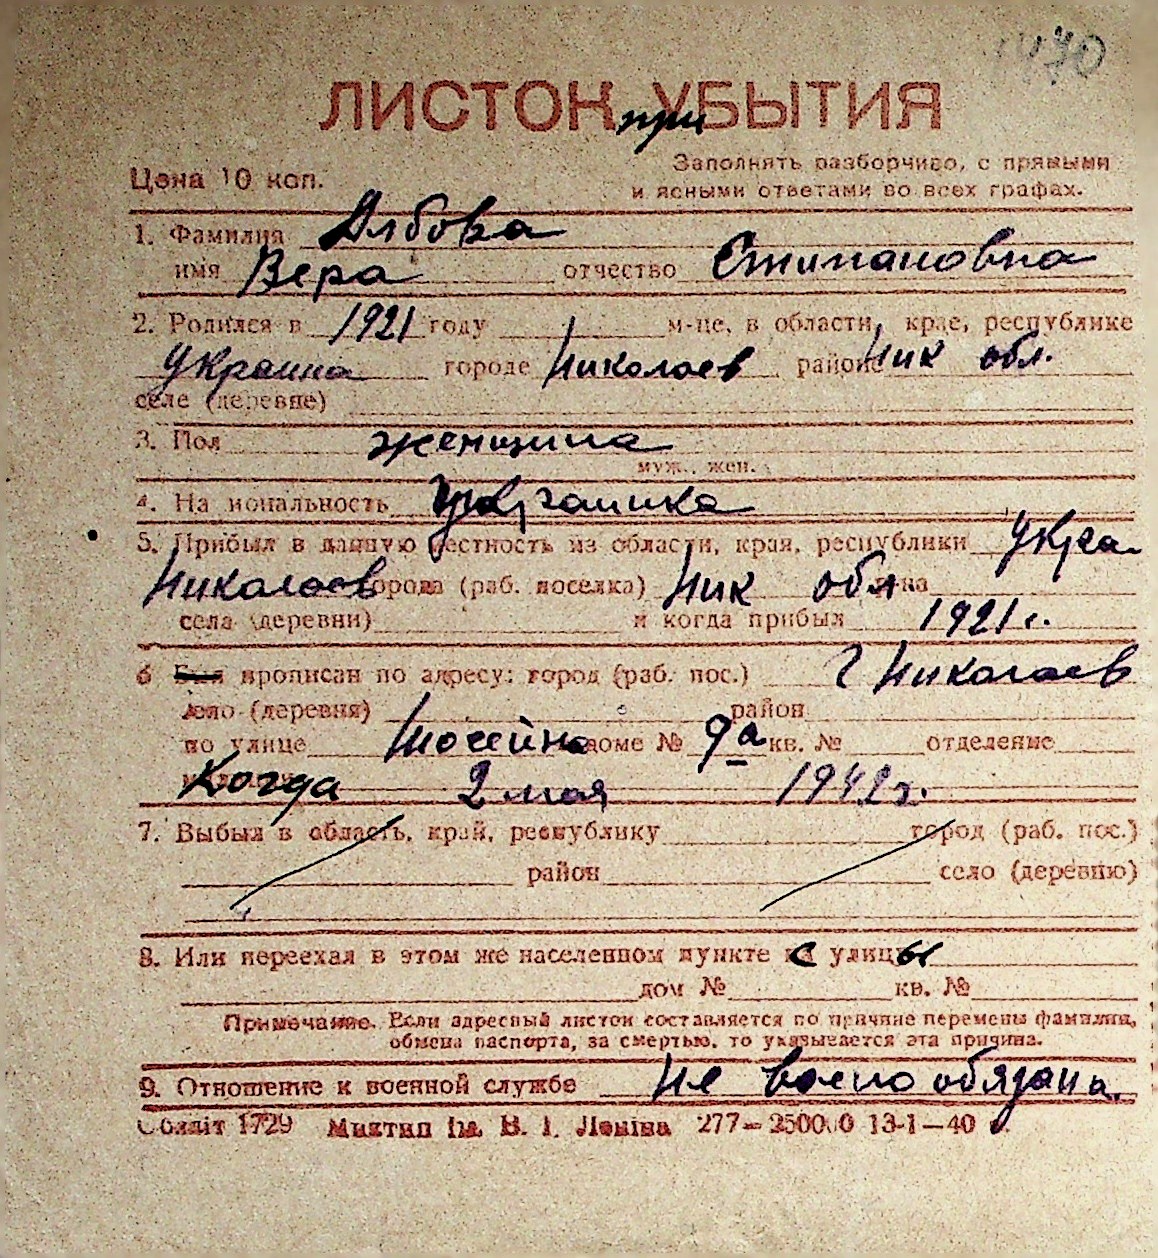 1170
ЛИСТОК при УБЫТИЯ
Цена 10 коп.
Заполнять разборчиво, с прямыми
и ясными ответами во всех графах.
1. Фамилия Албова
имя Вера отчество Стипановна
2. Родился в 1921 году м-це, в области, крае, республике
Украина городе Николаев районе Ник обл.
селе (деревне)
3. Пол женщина
муж., жен.
4. На иональность Украинка
5. Прибыл в данную местность из области, края, республики Укра
Николаев города (раб. поселка) Ник обл она
села (деревни) и когда прибыл 1921 г.
6 Был прописан по адресу: город (раб. пос.) г Николаев
село (деревня) район
по улице доме № 9а кв. № отделение
Когда 2 мая 1942 г.
7. Выбыл в область, край, республику город (раб. пос.)
район село (деревню)
8. Или переехал в этом же населенном пункте с улицы
дом № кв. №
Примечание. Если адресный листок составляется по причине перемены фамилии,
обмена паспорта, за смертью, то указывается эта причина.
9. Отношение к военной службе не воено обязана.
Облліт 1729 Миктип ім. В. І. Леніна 277—250000 13-1—40